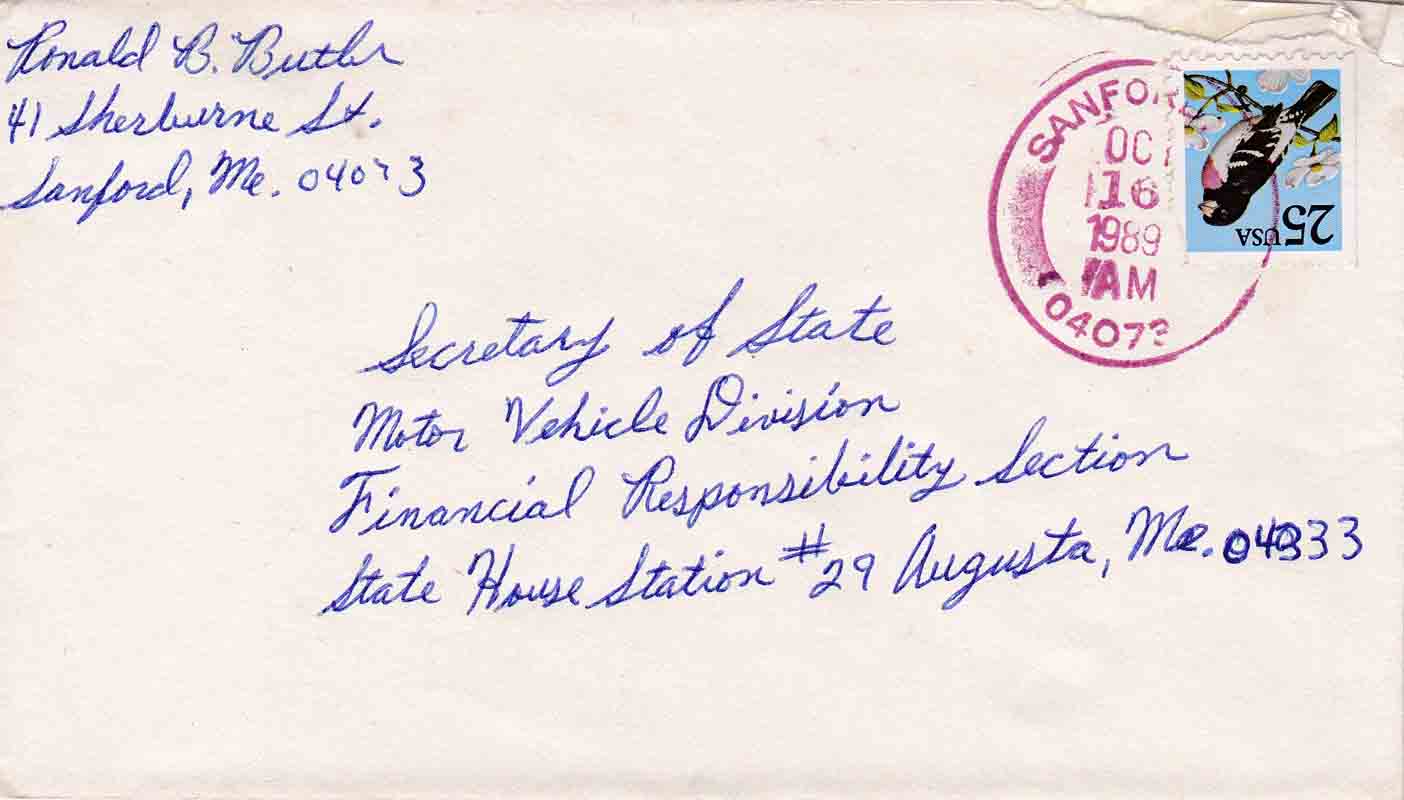 Ronald B. Butler
41 Sherburne St.
Sanford, Me. 04073
SANFORD
OCT
16
1989
AM
04073
25 USA
Secretary of State
Motor Vehicle Division
Financial Responsibility Section
State House Station #29 Augusta, Me. 04333